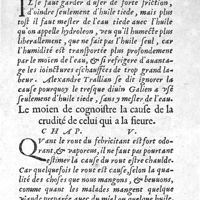 Il se faut garder d'user de forte friction,
d'oindre seulement d'huile tiede, mais plus
tost il faut mesler de l'eau tiede avec l'huile
qu'on appelle hydroleon, veu qu'il humecte plus
liberallement, que ne fait pas l'huile seul, car
l'humidité est transportée plus profondement
par le moien de l'eau, & si refrigere d'avant-
tage les iointures eschauffées de trop grand la-
beur. Alexandre Trallian se dit ignorer la
cause pourquoy le tresque diuin Galien a vsé
seulement d'huile tiede, sans y mesler de l'eau.
Le moien de cognoistre la cause de la
crudité de celui qui a la fieure.
CHAP. V.
Quant le rout du febricitant est fort odo-
rant, & vaporeux, il ne faut pas pourtant
estimer la cause du rout estre chaulde.
Car quelquefois le rout est cause, selon la qua-
lité des choses que nous mangons, & beuuons,
comme quant les malades mangent quelque
viande preparée avec du miel ou quelque huile